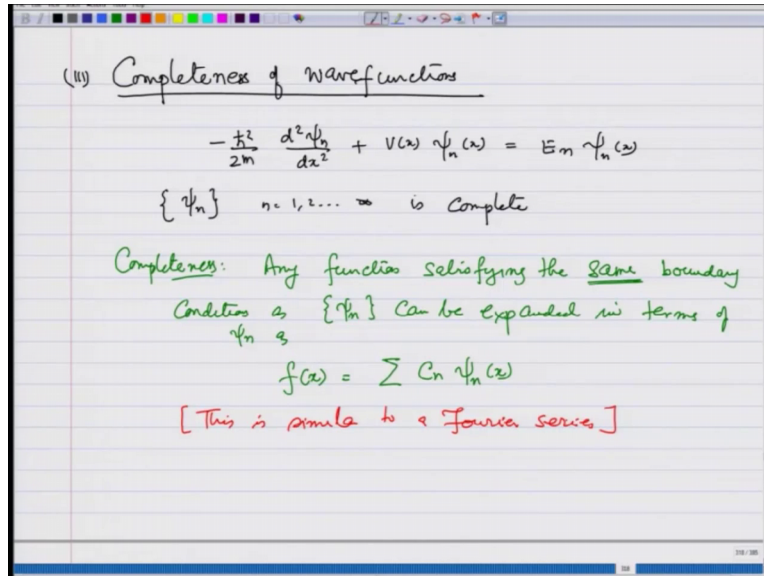 (III) Completeness of wavefunctions
-ħ²/2m d²ψn/dx² + V(x) ψn(x) = En ψn(x)
{ψn} n=1,2... ∞ is complete
Completeness: Any function satisfying the same boundary
Condition as {ψn} can be expanded in terms of
ψn as
f(x) = Σ Cn ψn(x)
[This is similar to a Fourier series]